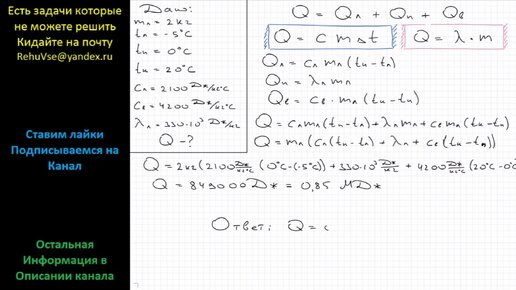 Есть задачи которые
не можете решить
Кидайте на почту
RehuVse@yandex.ru
Ставим лайки
Подписываемся на
Канал
Остальная
Информация в
Описании канала
Дано:
mл = 2кг
tл = -5°C
tн = 0°C
tк = 20°C
Cл = 2100 Дж/кг°C
Cв = 4200 Дж/кг°C
λл = 330·10³ Дж/кг
Q - ?
Q = Qл + Qп + Qв
Q = c m Δt
Q = λ · m
Qл = Cл mл (tн - tл)
Qп = λл mл
Qв = Cв · mл (tк - tн)
Q = Cл mл (tн - tл) + λл mл + Cв mл (tк - tн)
Q = mл (Cл (tн - tл) + λл + Cв (tк - tн))
Q = 2кг (2100 Дж/кг°C (0°C - (-5°C)) + 330·10³ Дж/кг + 4200 Дж/кг°C (20°C - 0°C
Q = 849000 Дж = 0,85 МДж
Ответ: Q =